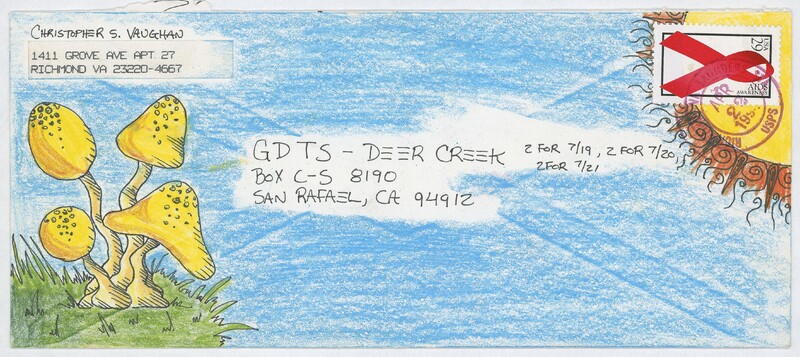 CHRISTOPHER S. VAUGHAN
1411 GROVE AVE APT. 27
RICHMOND VA 23220-4667
USA
29
AIDS
AWARENESS
APR
USPS
GDTS - DEER CREEK
BOX C-S 8190
SAN RAFAEL, CA 94912
2 FOR 7/19, 2 FOR 7/20,
2 FOR 7/21